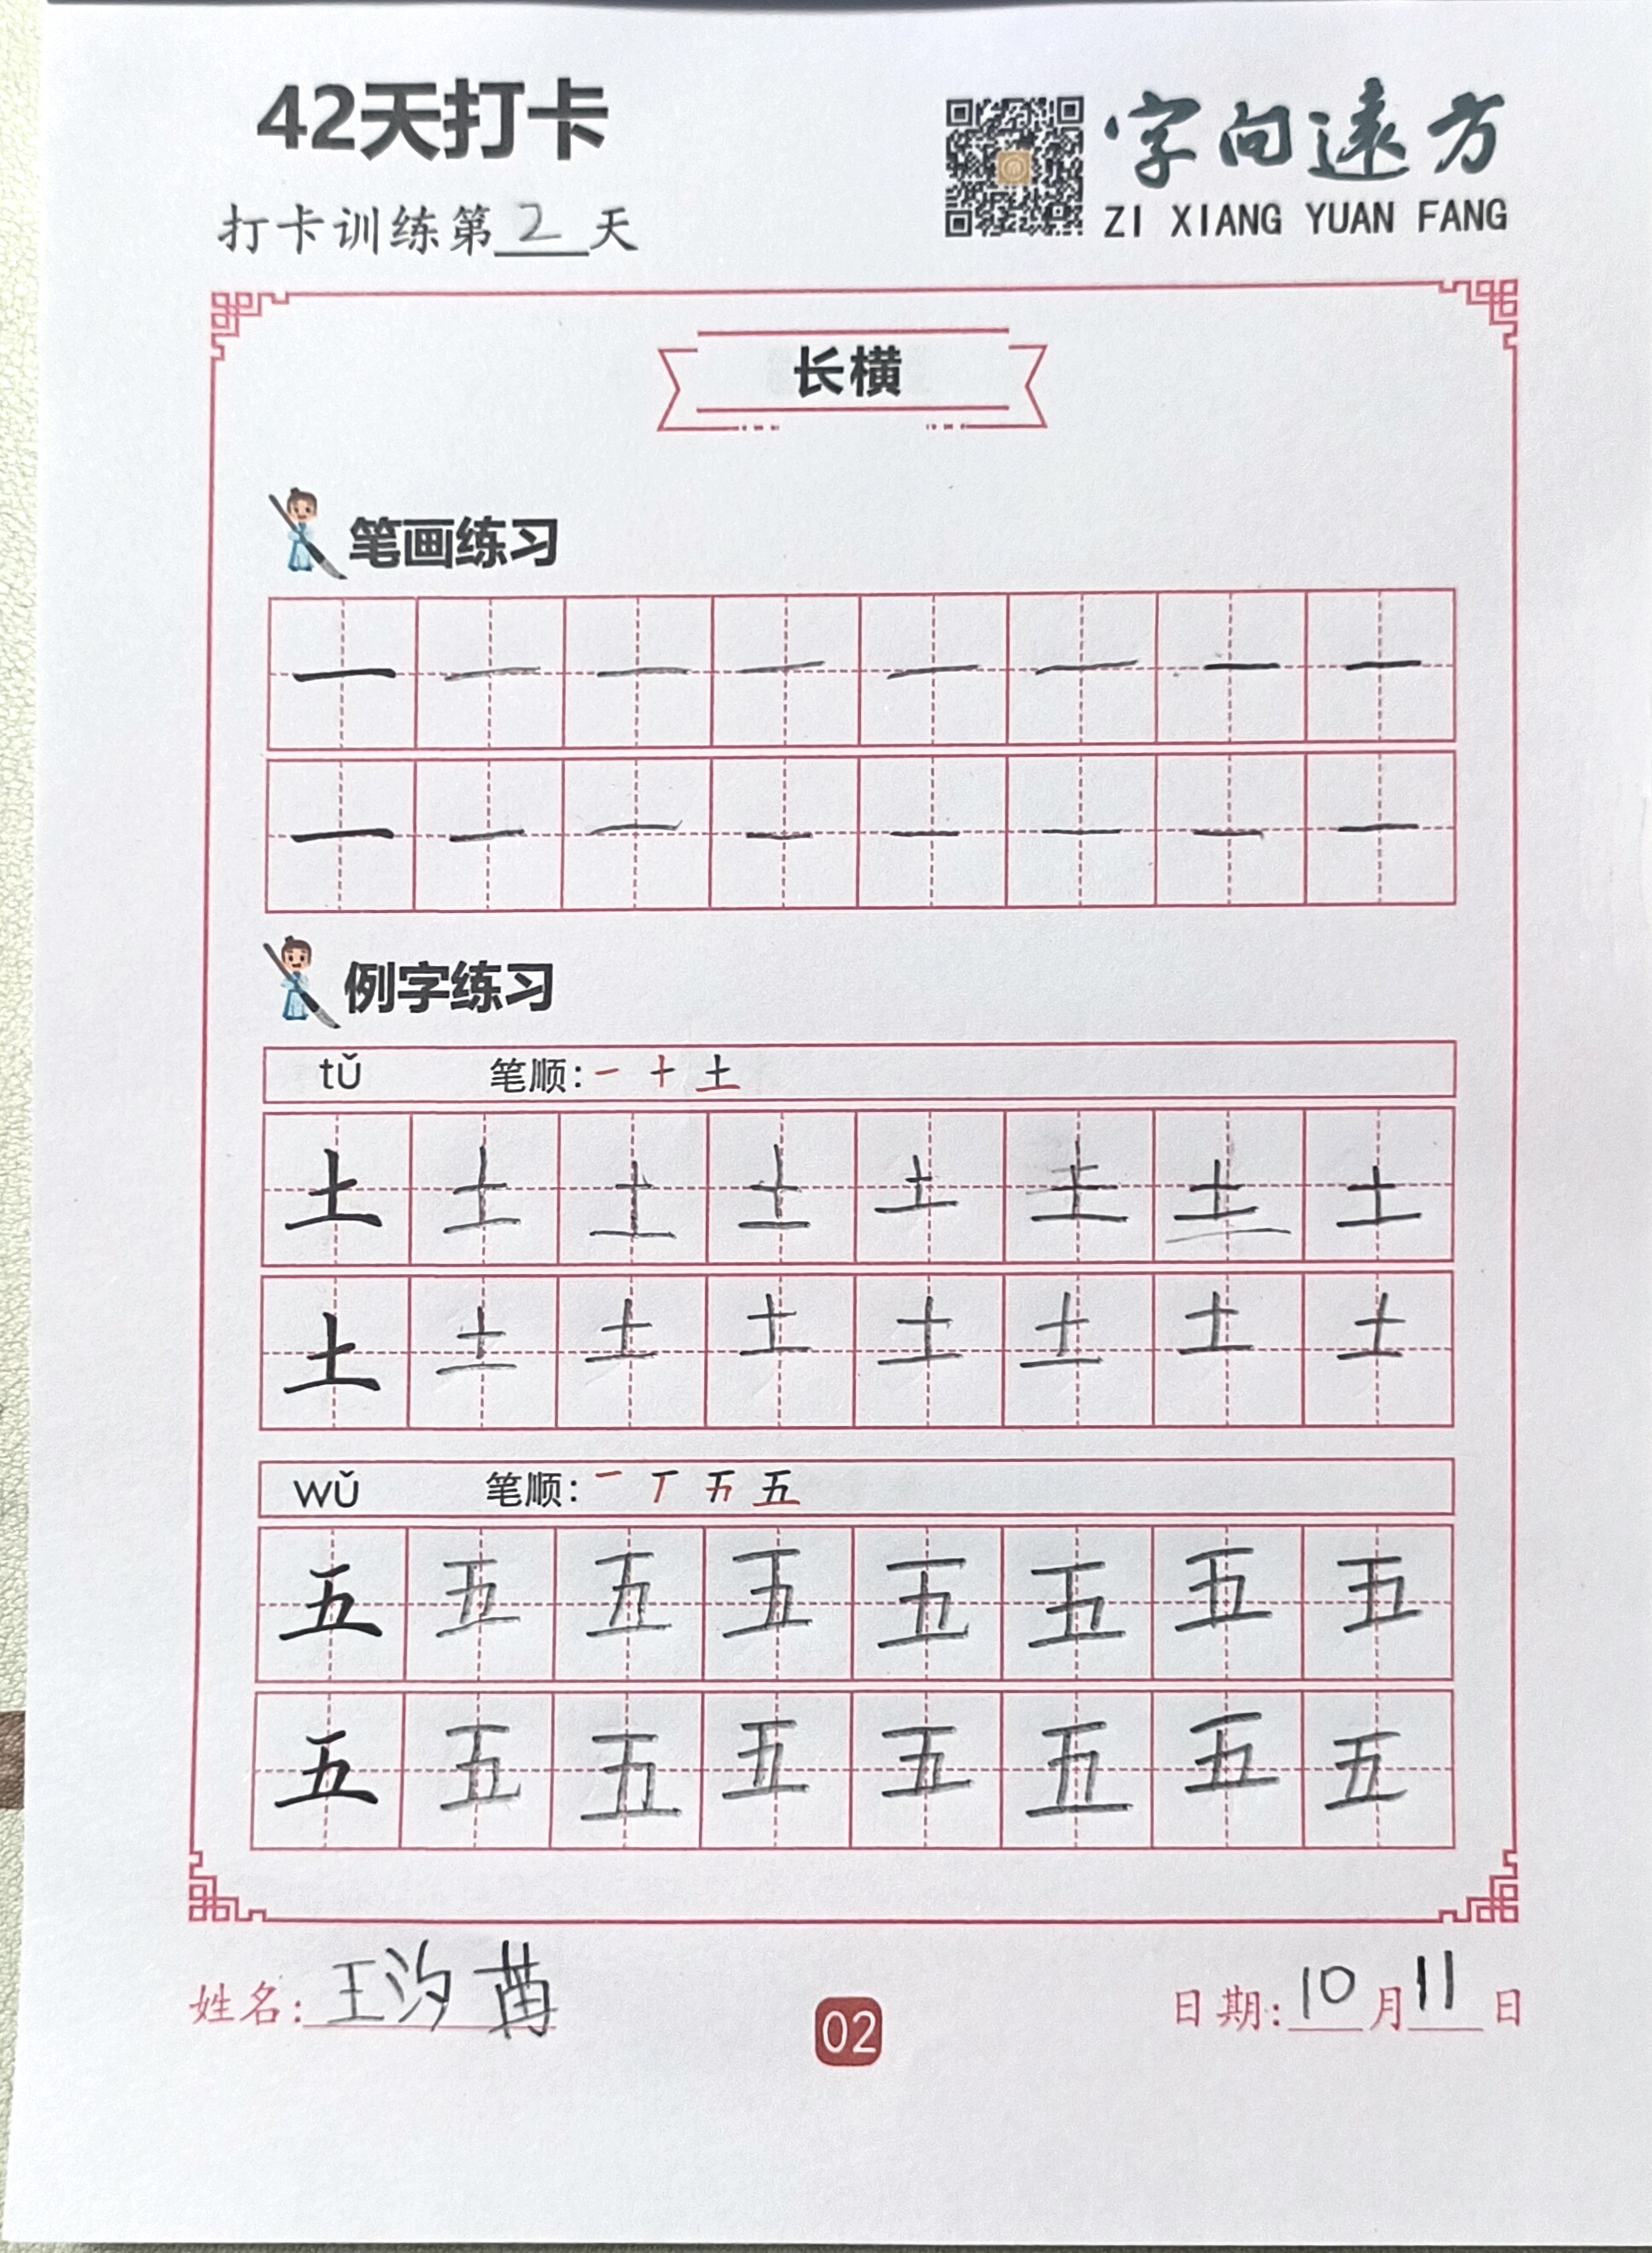 42天打卡
字向遠方
打卡训练第2天
ZI XIANG YUAN FANG
长横
笔画练习
一 一 一 一 一 一 一 一
一 一 一 一 一 一 一 一
例字练习
tǔ 笔顺: 一 十 土
土 土 土 土 土 土 土 土
土 土 土 土 土 土 土 土
wǔ 笔顺: 一 丅 五 五
五 五 五 五 五 五 五 五
五 五 五 五 五 五 五 五
姓名: 王汐苒
02
日期: 10月11日